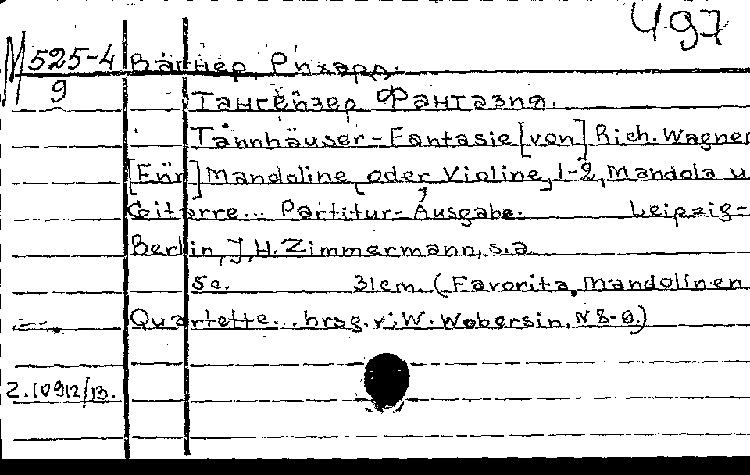 497
M 525-4 Вагнер, Рихард.
9
Тангейзер Фантазия.
Tannhäuser-Fantasie [von] Rich. Wagner
[Für] Mandoline, oder Violine, 1-2, Mandola u
Gitarre... Partitur-Ausgabe. Leipzig-
Berlin, J.H. Zimmermann, s.a
5c. 31cm. (Favorita, Mandolinen
Quartette... hrsg. v. W. Wobersin,